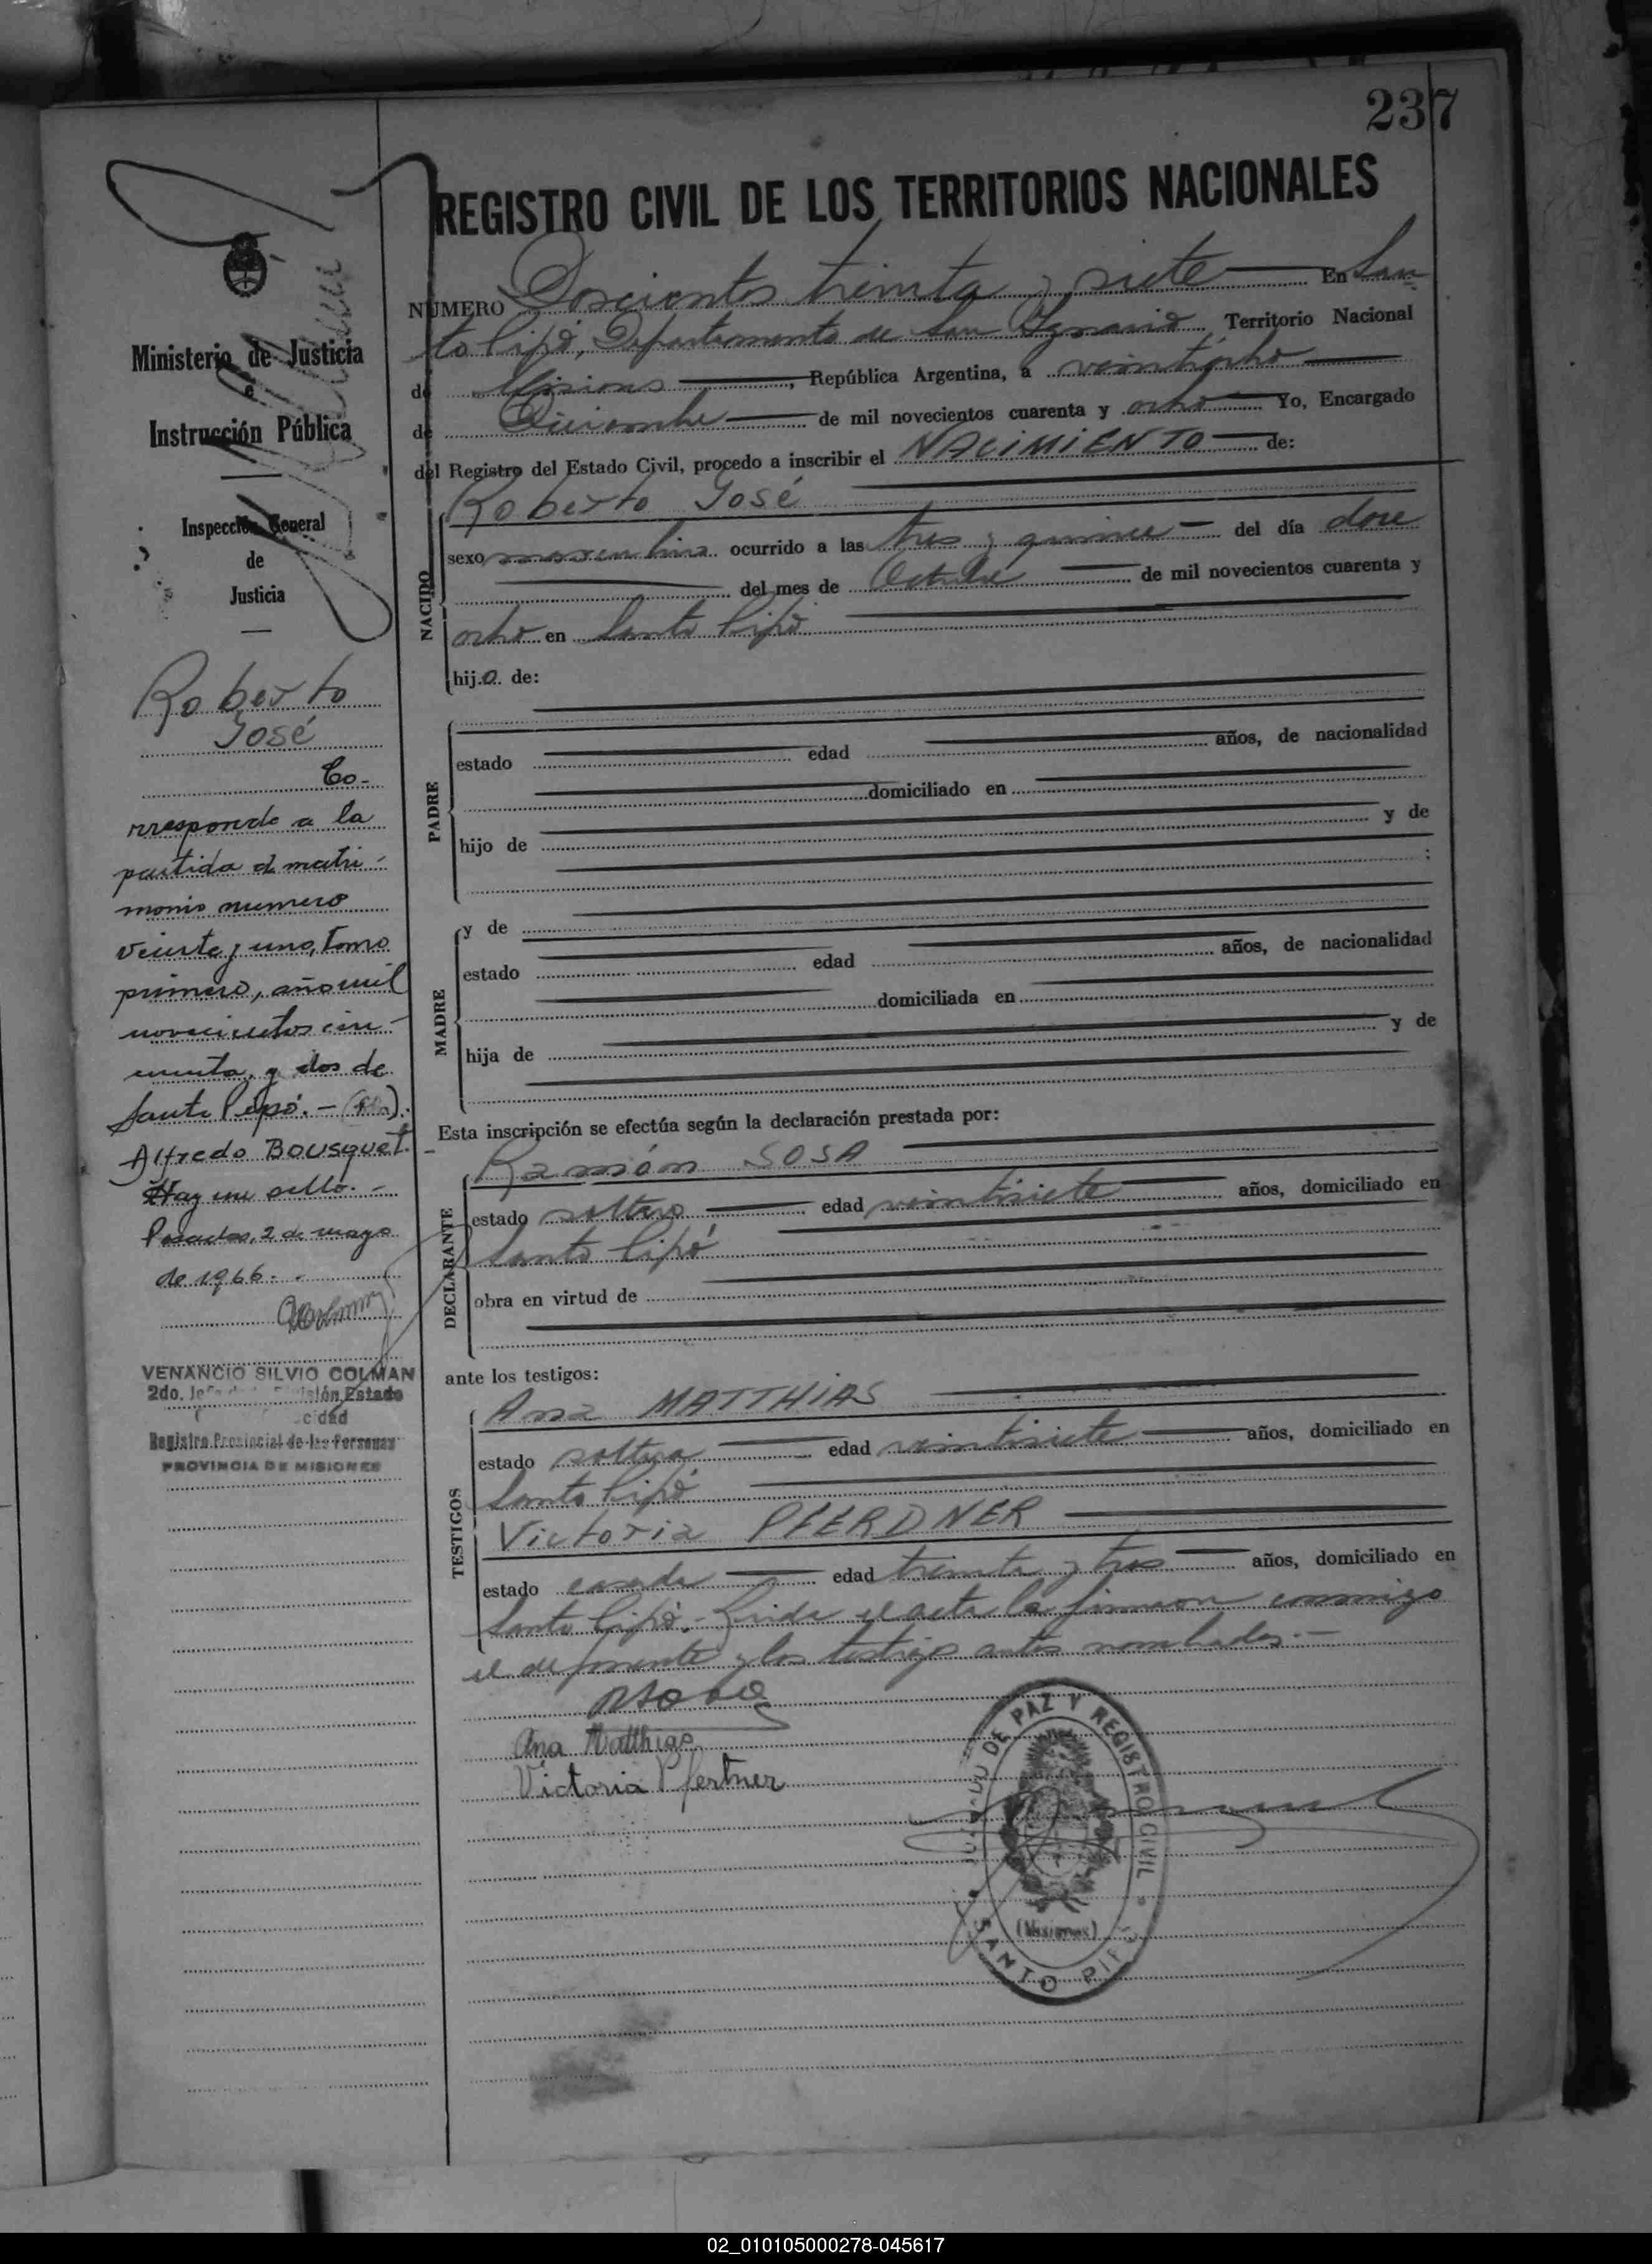 237
REGISTRO CIVIL DE LOS TERRITORIOS NACIONALES
NUMERO Doscientos treinta y siete En San
to Pipó, Departamento de San Ignacio, Territorio Nacional
de Misiones, República Argentina, a veintiocho
de Diciembre de mil novecientos cuarenta y ocho Yo, Encargado
del Registro del Estado Civil, procedo a inscribir el NACIMIENTO de:
NACIDO
Roberto José
sexo masculino ocurrido a las tres y quince del día doce
del mes de Octubre de mil novecientos cuarenta y
ocho en Santo Pipó
hijo de:
PADRE
estado edad años, de nacionalidad
domiciliado en
hijo de y de
:
MADRE
y de
estado edad años, de nacionalidad
domiciliada en
hija de y de
Esta inscripción se efectúa según la declaración prestada por:
DECLARANTE
Ramón SOSA
estado soltero edad veintisiete años, domiciliado en
Santo Pipó
obra en virtud de
ante los testigos:
TESTIGOS
Ana MATTHIAS
estado soltera edad veintisiete años, domiciliado en
Santo Pipó
Victoria PFERDNER
estado casada edad treinta y tres años, domiciliado en
Santo Pipó.- Leida el acta la firmaron conmigo
el deponente y los testigo antes nombrados.-
Ana Matthias
Victoria Pfertner
DE PAZ Y REGISTRO CIVIL
(Misiones)
SANTO PIPÓ
Ministerio de Justicia
e
Instrucción Pública
Inspección General
de
Justicia
Roberto
José
Co-
rresponde a la
partida d matri-
monio numero
veinte y uno, tomo
primero, año mil
novecientos cin-
cuenta y dos de
Santo Pipó.-
Alfredo BOUSQUET.
Hay un sello.-
Posadas, 2 de mayo
de 1966.
VENANCIO SILVIO COLMAN
2do. Jefe División Estado
Registro Provincial de las Personas
PROVINCIA DE MISIONES
02_010105000278-045617